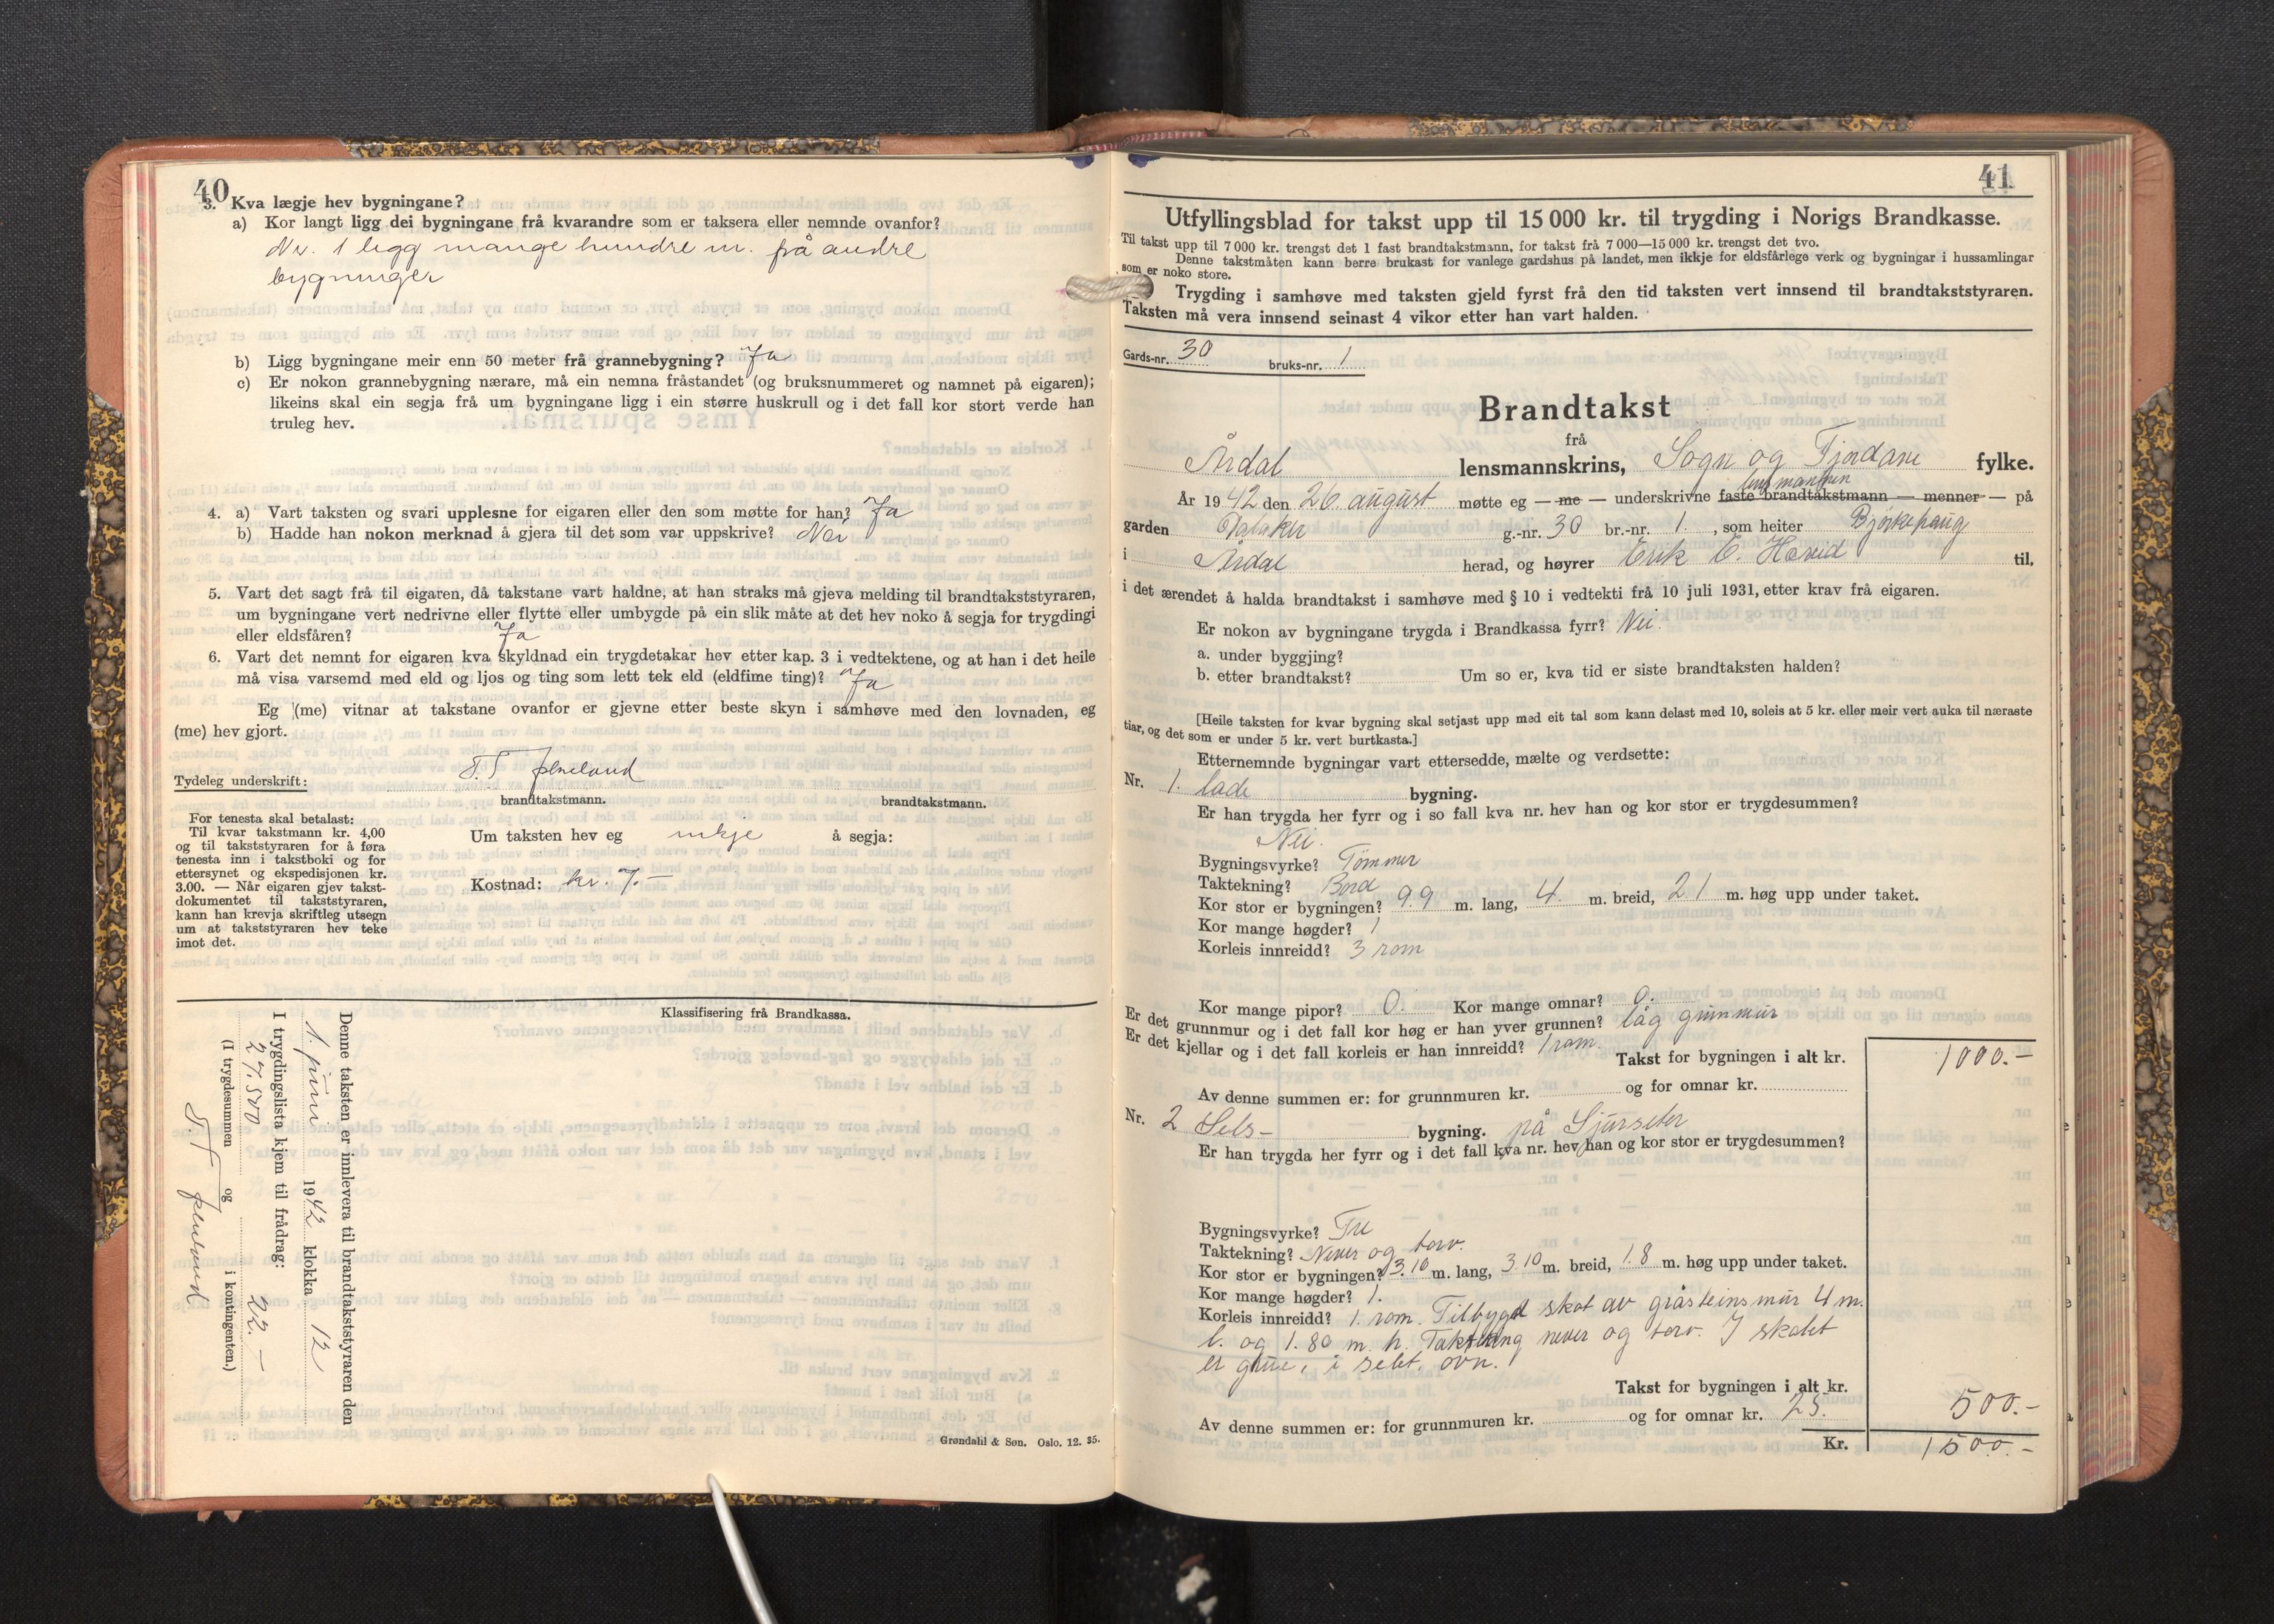 40
3. Kva lægje hev bygningane?
a) Kor langt ligg dei bygningane frå kvarandre som er taksera eller nemnde ovanfor?
Nr. 1 ligg mange hundre m. på andre
bygningar
b) Ligg bygningane meir enn 50 meter frå grannebygning? Ja
c) Er nokon grannebygning nærare, må ein nemna fråstandet (og bruksnummeret og namnet på eigaren);
likeins skal ein segja frå um bygningane ligg i ein større huskrull og i det fall kor stort verde han
truleg hev.
4. a) Vart taksten og svari upplesne for eigaren eller den som møtte for han? Ja
b) Hadde han nokon merknad å gjera til det som var uppskrive? Nei
5. Vart det sagt frå til eigaren, då takstane vart haldne, at han straks må gjeva melding til brandtakststyraren,
um bygningane vert nedrivne eller flytte eller umbygde på ein slik måte at det hev noko å segja for trygdingi
eller eldsfåren? Ja
6. Vart det nemnt for eigaren kva skyldnad ein trygdetakar hev etter kap. 3 i vedtektene, og at han i det heile
må visa varsemd med eld og ljos og ting som lett tek eld (eldfime ting)? Ja
Eg (me) vitnar at takstane ovanfor er gjevne etter beste skyn i samhøve med den lovnaden, eg
(me) hev gjort.
Tydeleg underskrift:
brandtakstmann. brandtakstmann.
For tenesta skal betalast:
Til kvar takstmann kr. 4,00
og til takststyraren for å føra
tenesta inn i takstboki og for
ettersynet og ekspedisjonen kr.
3.00. — Når eigaren gjev takst-
dokumentet til takststyraren,
kann han krevja skriftleg utsegn
um at takststyraren hev teke
imot det.
Um taksten hev eg inkje å segja:
Kostnad: kr. 7.—
Klassifisering frå Brandkassa.
Denne taksten er innlevera til brandtakststyraren den
1. juni 1942 klokka 12
I trygdingslista kjem til frådrag:
27.500 og 22.—
(I trygdesummen i kontingenten.)
Grøndahl & Søn. Oslo. 12. 35.
41
Utfyllingsblad for takst upp til 15 000 kr. til trygding i Norigs Brandkasse.
Til takst upp til 7 000 kr. trengst det 1 fast brandtakstmann, for takst frå 7 000—15 000 kr. trengst det tvo.
Denne takstmåten kann berre brukast for vanlege gardshus på landet, men ikkje for eldsfårlege verk og bygningar i hussamlingar
som er noko store.
Trygding i samhøve med taksten gjeld fyrst frå den tid taksten vert innsend til brandtakststyraren.
Taksten må vera innsend seinast 4 vikor etter han vart halden.
Gards-nr. 30 bruks-nr. 1
Brandtakst
frå
Årdal lensmannskrins, Sogn og Fjordane fylke.
År 1942 den 26. august møtte eg — me — underskrivne faste brandtakstmann — menner — på
lensmannen
garden g.-nr. 30 br.-nr. 1. , som heiter Bjørkehaug
i Årdal herad, og høyrer Erik E. Hæreid til,
i det ærendet å halda brandtakst i samhøve med § 10 i vedtekti frå 10 juli 1931, etter krav frå eigaren.
Er nokon av bygningane trygda i Brandkassa fyrr? Nei.
a. under byggjing?
b. etter brandtakst? Um so er, kva tid er siste brandtaksten halden?
[Heile taksten for kvar bygning skal setjast upp med eit tal som kann delast med 10, soleis at 5 kr. eller meir vert auka til næraste
tiar, og det som er under 5 kr. vert burtkasta.]
Etternemnde bygningar vart ettersedde, mælte og verdsette:
Nr. 1. lade bygning.
Er han trygda her fyrr og i so fall kva nr. hev han og kor stor er trygdesummen?
Nei.
Bygningsvyrke? Tømmer
Taktekning? Bord
Kor stor er bygningen? 9.9 m. lang, 4. m. breid, 2.1 m. høg upp under taket.
Kor mange høgder? 1
Korleis innreidd? 3 rom
Kor mange pipor? 0. Kor mange omnar? 0.
Er det grunnmur og i det fall kor høg er han yver grunnen? låg grunmur
Er det kjellar og i det fall korleis er han innreidd? 1 rom.
Takst for bygningen i alt kr. 1000.-
Av denne summen er: for grunnmuren kr. og for omnar kr.
Nr. 2 Sels- bygning. på Sjurseter
Er han trygda her fyrr og i det fall kva nr. hev han og kor stor er trygdesummen?
Bygningsvyrke? Tre
Taktekning? Never og torv.
Kor stor er bygningen? 3.10 m. lang, 3.10 m. breid, 1.8 m. høg upp under taket.
Kor mange høgder? 1.
Korleis innreidd? 1. rom. Tilbygd skot av gråsteinsmur 4 m.
l. og 1.80 m. h. Taktekning never og torv. I skotet
er grue, i selet ovn.
Takst for bygningen i alt kr. 500.-
Av denne summen er: for grunnmuren kr. og for omnar kr. 25.
Kr. 1500.-